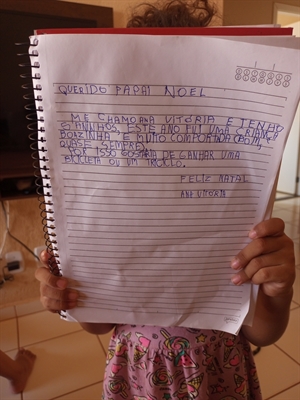 QUERIDO PAPAI NOEL
ME CHAMO ANA VITÓRIA E TENHO
5 ANINHOS, ESTE ANO FUI UMA CRIANÇA
BOAZINHA E MUITO COMPORTADA (BOM,
QUASE SEMPRE)
POR ISSO GOSTARIA DE GANHAR UMA
BICICLETA OU UM TRICICLO.
FELIZ NATAL
ANA VITÓRIA